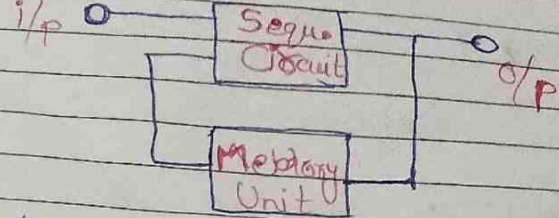 i/p
Sequ.
Circuit
o/p
Memory
Unit